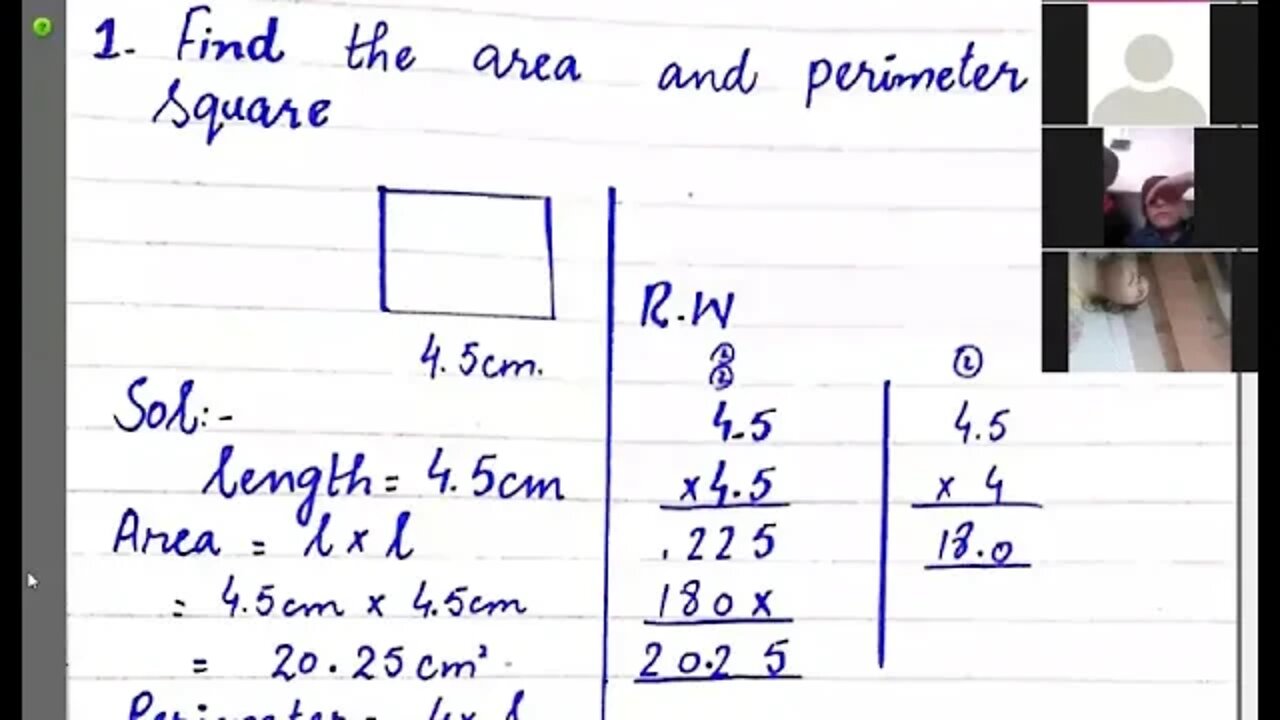 1. Find the area and perimeter
square
4.5cm.
Sol:-
length = 4.5cm
Area = l x l
= 4.5cm x 4.5cm
= 20.25 cm²
Perimeter = 4x l
R.W
② 
②
4.5
x4.5
.225
180x
20.25
②
4.5
x 4
18.0